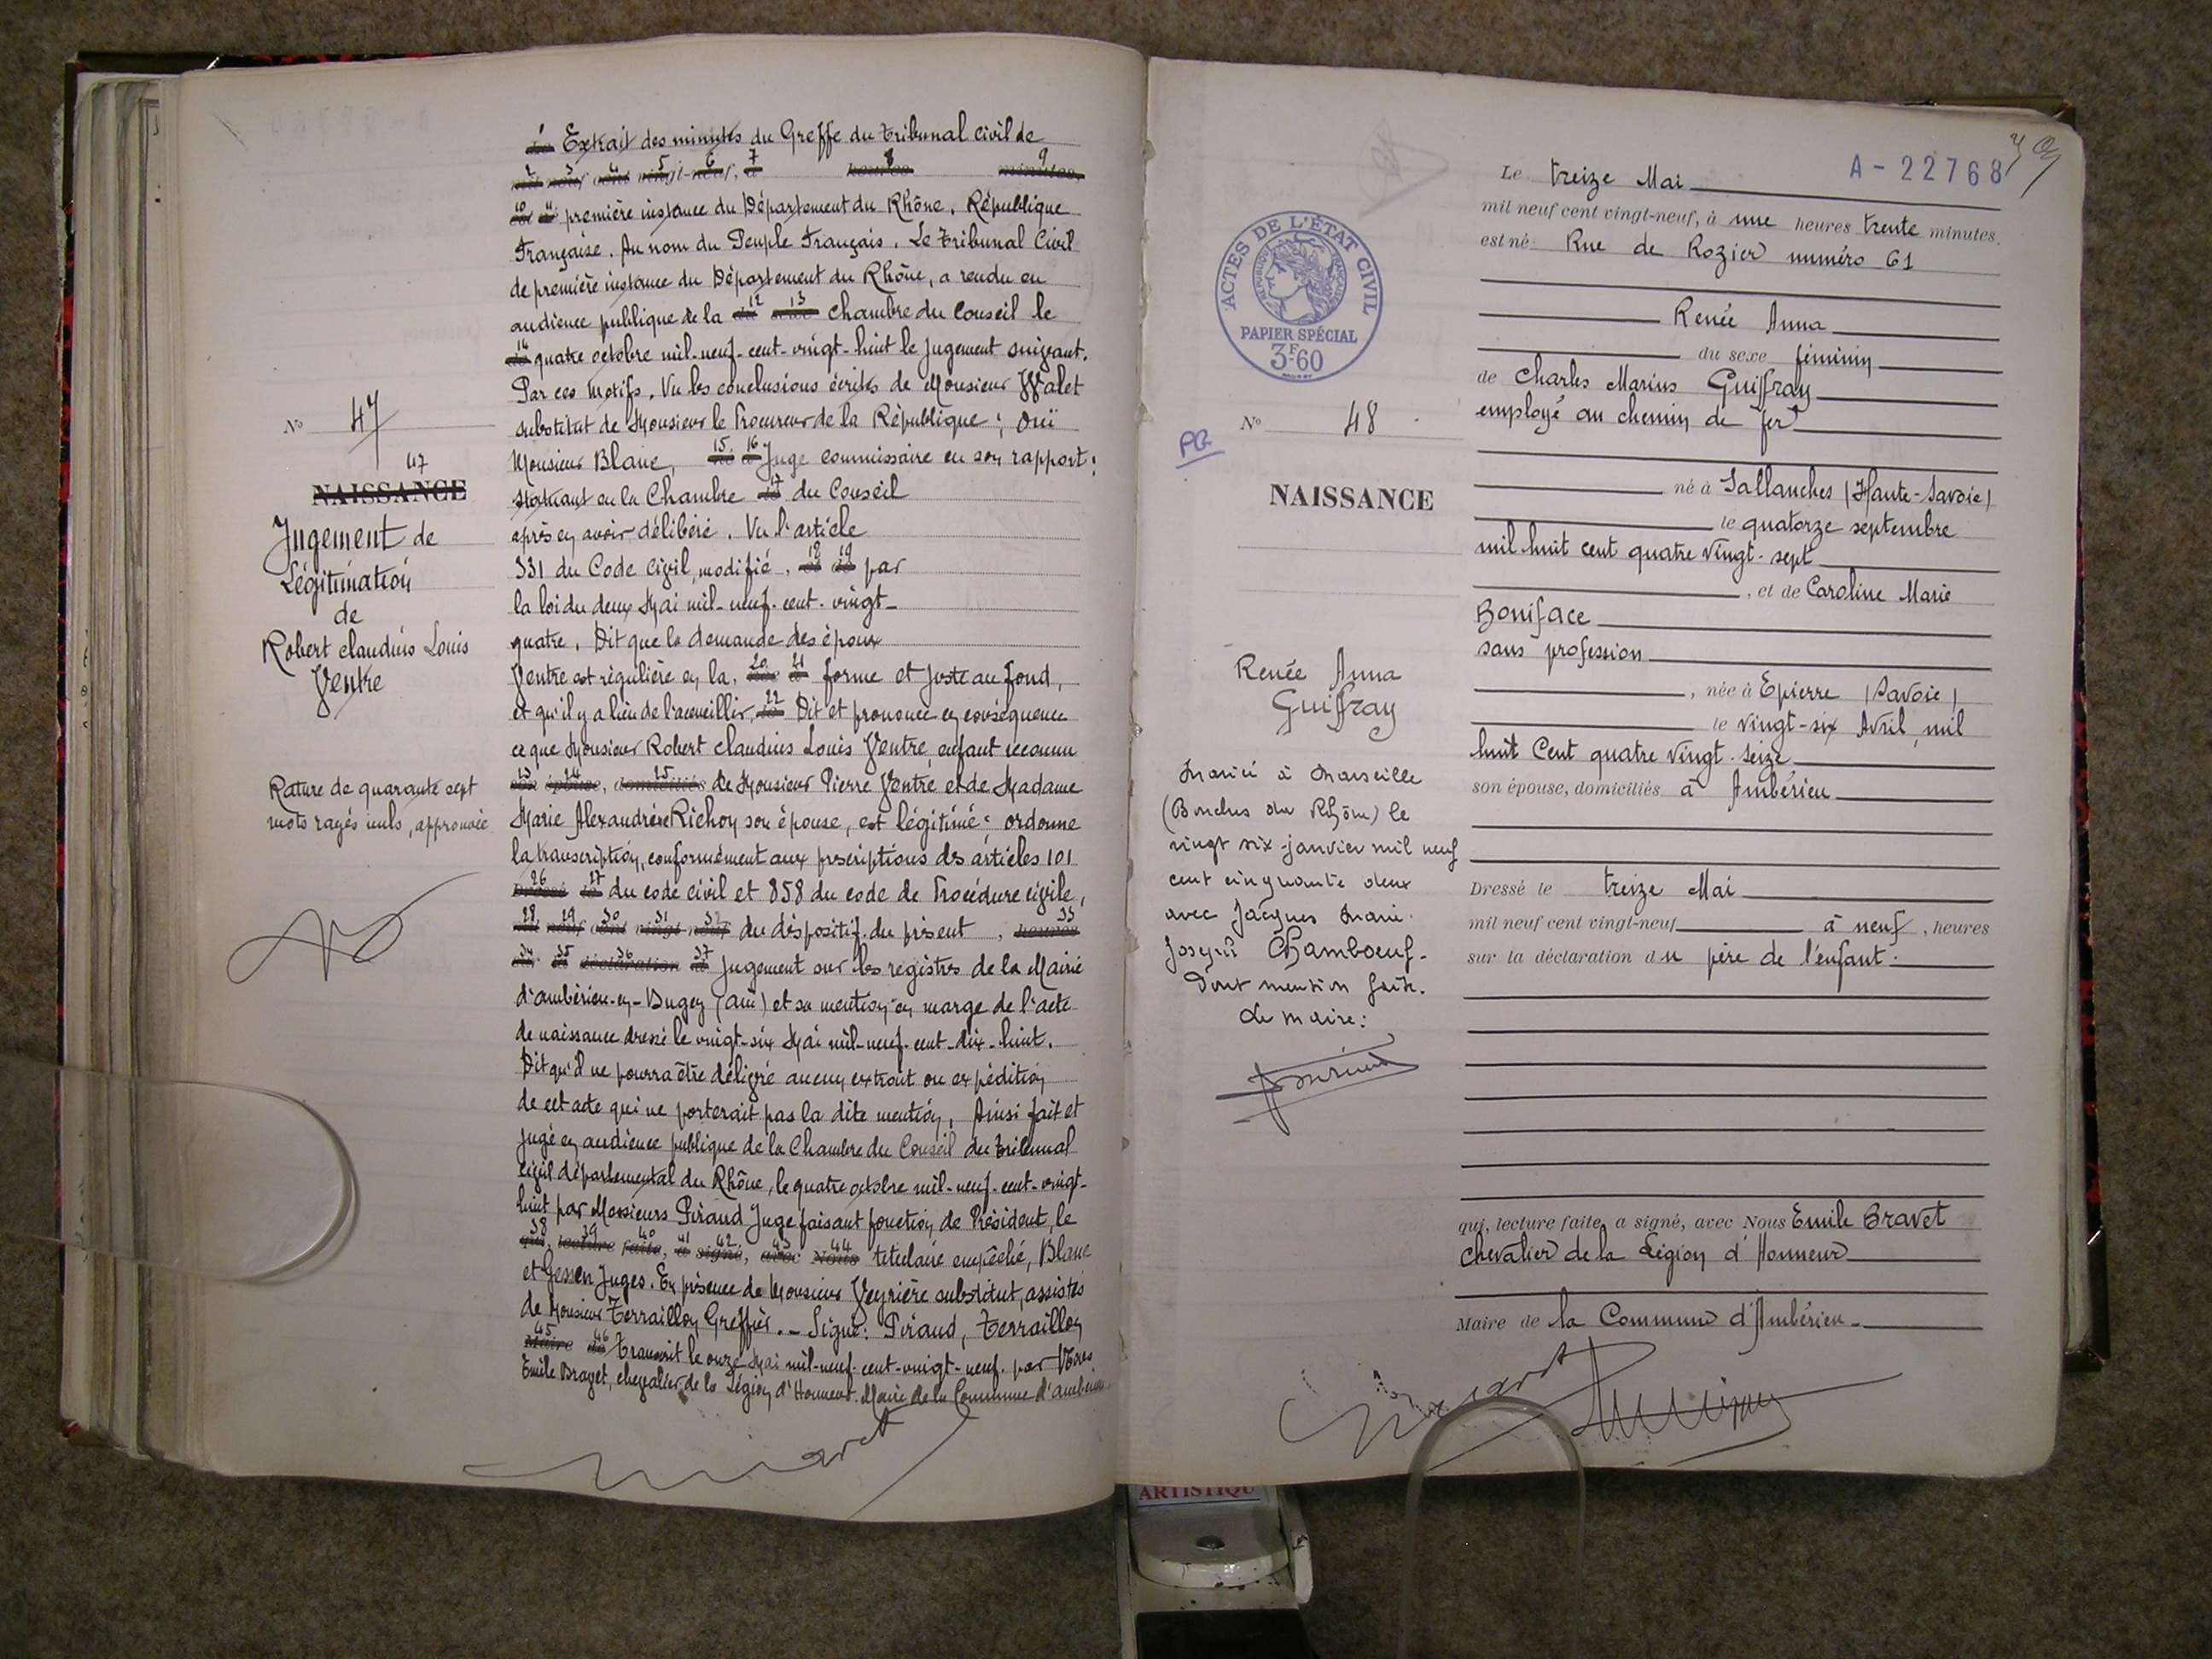 Extrait des minutes du Greffe du Tribunal Civil de
mil neuf cent vingt-neuf, à heures minutes,
première instance du Département du Rhône, République
Française. Au nom du Peuple Français. Le Tribunal Civil
de première instance du Département du Rhône, a rendu en
audience publique de la 12 13 chambre du Conseil le
14 quatre octobre mil-neuf-cent-vingt-huit le jugement suivant.
Par ces motifs. Vu les conclusions écrites de Monsieur Walet
substitut de Monsieur le Procureur de la République ; Ouï
Monsieur Blanc, 15 16 Juge commissaire en son rapport :
statuant en la Chambre 17 du Conseil
après en avoir délibéré. Vu l'article
331 du Code civil, modifié, 18 19 par
la loi du deux Mai mil-neuf-cent-vingt-
quatre. Dit que la demande des époux
Ventre est régulière en la, 20 21 forme et juste au fond,
et qu'il y a lieu de l'accueillir, 22 Dit et prononce en conséquence
ce que Monsieur Robert Claudius Louis Ventre, enfant reconnu
23 24 25 son épouse, domiciliés de Monsieur Pierre Ventre et de Madame
Marie Alexandrine Richoy son épouse, est légitimé ; ordonne
la transcription, conformément aux prescriptions des articles 101
26 27 du code civil et 858 du code de Procédure civile,
28 29 30 31 32 mil neuf cent vingt-neuf du dispositif du présent , 33 heures
34 35 36 37 déclaration Jugement sur les registres de la Mairie
d'Ambérieu-en-Bugey (Ain) et sa mention en marge de l'acte
de naissance dressé le vingt-six Mai mil-neuf-cent-dix-huit.
Dit qu'il ne pourra être délivré aucun extrait ou expédition
de cet acte qui ne porterait pas la dite mention. Ainsi fait et
jugé en audience publique de la Chambre du Conseil du Tribunal
civil départemental du Rhône, le quatre octobre mil-neuf-cent-vingt-
huit par Messieurs Piraud Juge faisant fonction de Président, le
38 39 40 41 42 43 44 qui, lecture faite, a signé, avec Nous titulaire empêché, Blanc
et Jessen Juges. En présence de Monsieur Veyrière substitut, assistés
de Monsieur Terraillon Greffier. - Signé : Piraud, Terraillon
45 46 Maire de Transcrit le onze Mai mil-neuf-cent-vingt-neuf par Nous
Emile Bravet, chevalier de la Légion d'Honneur. Maire de la Commune d'Ambérieu
No 47
47
NAISSANCE
Jugement de
Légitimation
de
Robert Claudius Louis
Ventre
Rature de quarante sept
mots rayés nuls, approuvée
A - 22768
Le treize Mai
mil neuf cent vingt-neuf, à une heures trente minutes.
est né Rue de Rozier numéro 61
Renée Anna
du sexe féminin
de Charles Marius Guiffray
employé au chemin de fer
né à Sallanches (Haute-Savoie)
le quatorze septembre
mil huit cent quatre vingt-sept
, et de Caroline Marie
Boniface
sans profession
, née à Epierre (Savoie)
le vingt-six Avril mil
huit Cent quatre vingt-seize
son épouse, domiciliés à Ambérieu
Dressé le treize Mai
mil neuf cent vingt-neuf à neuf, heures
sur la déclaration du père de l'enfant.
qui, lecture faite, a signé, avec Nous Emile Bravet
Chevalier de la Légion d'Honneur
Maire de la Commune d'Ambérieu.
ACTES DE L'ÉTAT CIVIL
RÉPUBLIQUE FRANÇAISE
PAPIER SPÉCIAL
3F60
No 48
NAISSANCE
Renée Anna
Guiffray
Mariée à Marseille
(Bouches du Rhône) le
vingt six janvier mil neuf
cent cinquante deux
avec Jacques Marie
Joseph Chamboeuf.
Dont mention faite.
Le Maire :
ARTISTIQU